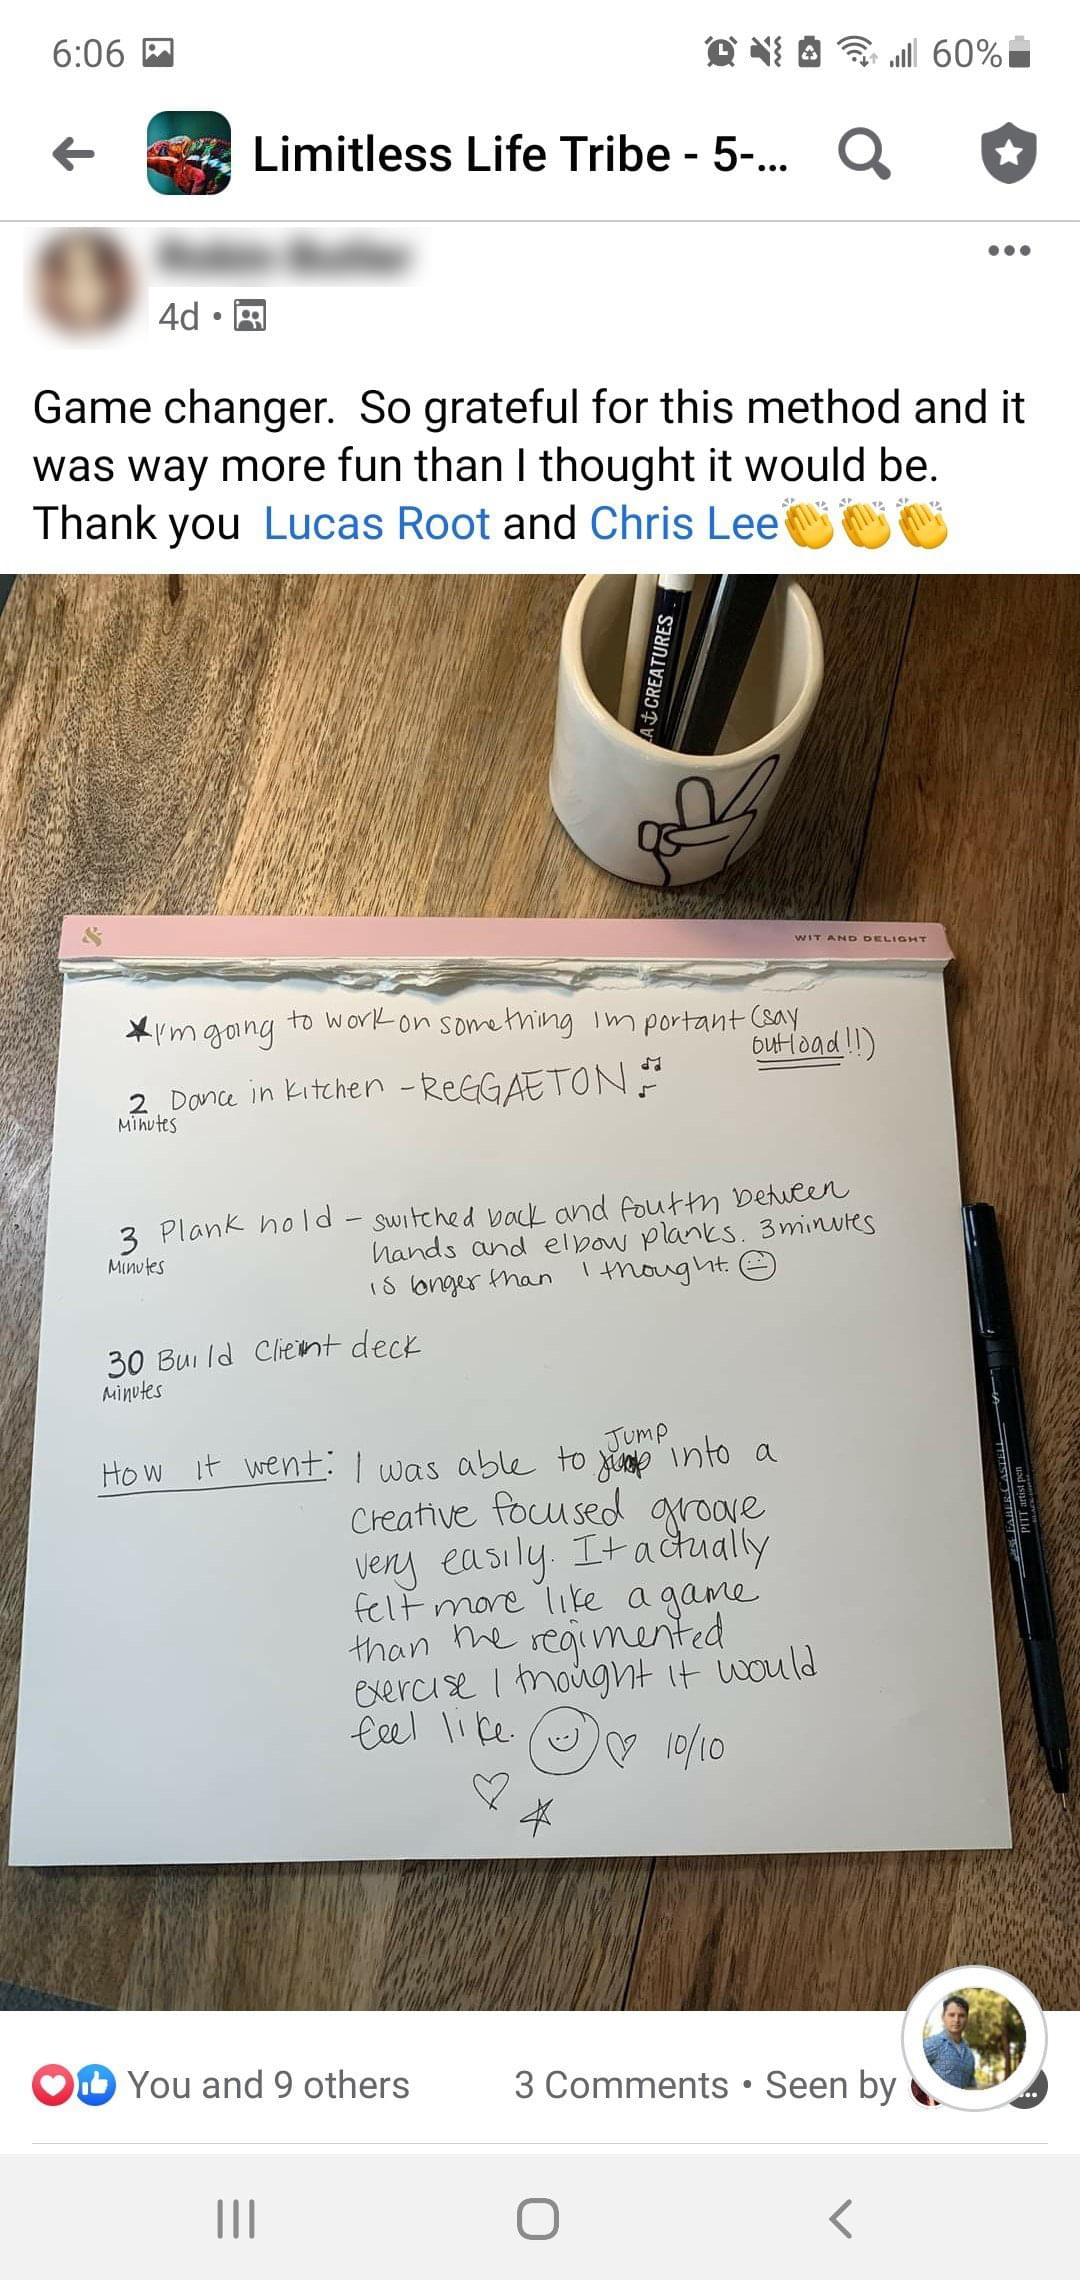 6:06
60%
Limitless Life Tribe - 5-...
4d •
Game changer. So grateful for this method and it
was way more fun than I thought it would be.
Thank you Lucas Root and Chris Lee👏👏👏
A⚓CREATURES
WIT AND DELIGHT
★I'm going to work on something important (say
outload!!)
2 Dance in kitchen - REGGAETON ♫
Minutes
3 Plank hold - switched back and fouth between
Minutes hands and elbow planks. 3 minutes
is longer than I thought.
30 Build Client deck
Minutes
How it went: I was able to Jump into a
creative focused groove
very easily. It actually
felt more like a game
than the regimented
exercise I thought it would
feel like. ☺ ♡ 10/10
♡ ☆
FABER CASTELL
PITT artist pen
You and 9 others
3 Comments • Seen by